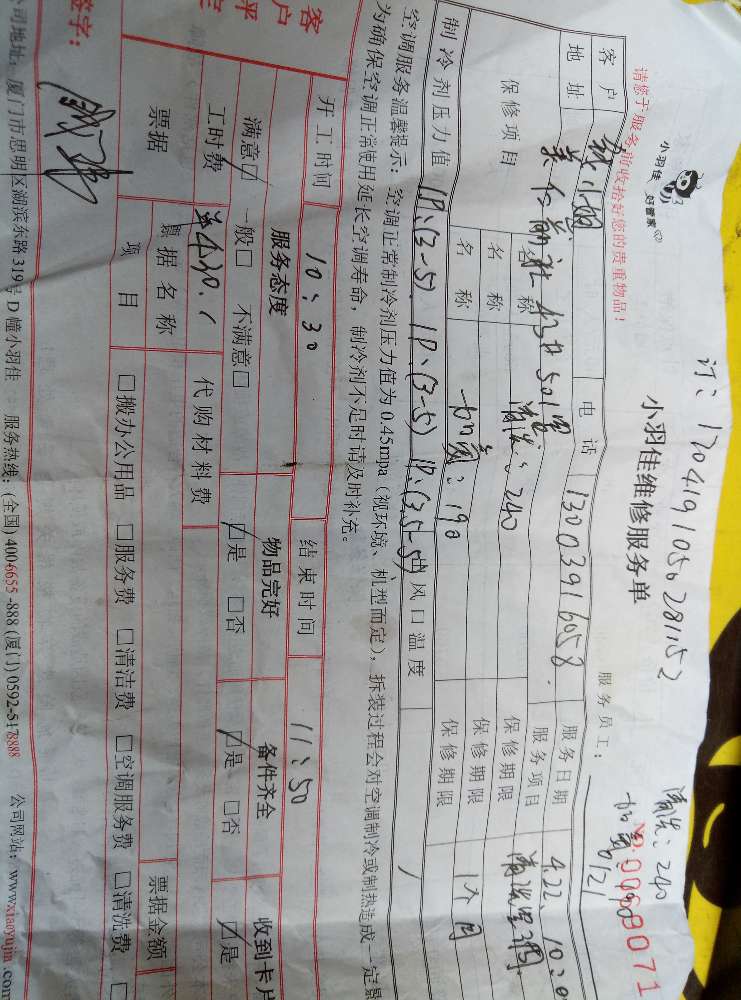 订：170419105028152
清洗：240
小羽佳
好管家
小羽佳维修服务单
请您于服务前收拾好您的贵重物品！
服务员工：
客户
电话 13003916058
服务日期 4.22. 10:0
地址
服务项目
保修项目
名称 清洗：240
保修期限
名称
保修期限
名称 加氟：190
保修期限 1个月
制冷剂压力值 1P、(3-5) 1P、(3-5) 1P、(3.5-5)
出风口温度
空调服务温馨提示：空调正常制冷剂压力值为0.45mpa（视环境、机型而定），拆装过程会对空调制冷或制热造成一定
为确保空调正常使用延长空调寿命，制冷剂不足时请及时补充。
开工时间 10:30 结束时间 11:50
客户
服务态度 物品完好 备件齐全 收到卡片
满意☑ 一般□ 不满意□ ☑是 □否 ☑是 □否 ☑是
工时费 代购材料费
票据 票据名称 票据金额
项目 □搬办公用品 □服务费 □清洁费 □空调服务费 □清洗费 □
签字：
司地址：厦门市思明区湖滨东路319号D幢小羽佳 服务热线：(全国) 400-6655-888 (厦门) 0592-5178888 公司网站：www.xiaoyujia.com